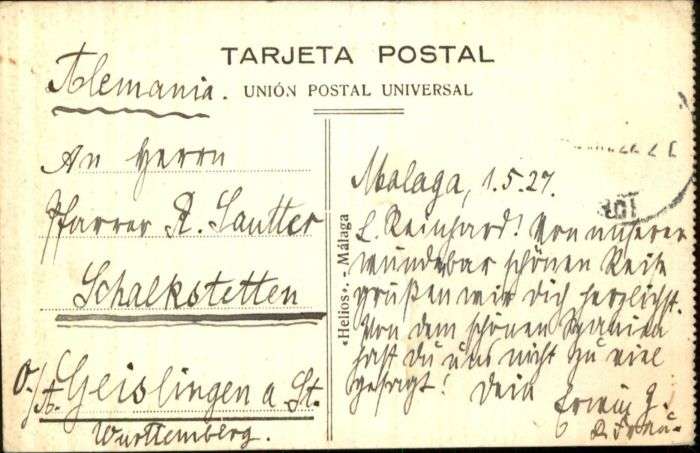 TARJETA POSTAL
UNIÓN POSTAL UNIVERSAL
Alemania.
An Herrn
Pfarrer R. Sautter
Schalkstetten
O./A. Geislingen a. St.
Württemberg.
«Helios». - Málaga
Malaga, 1.5.27.
L. Reinhard! Von unserer
wunderbar schönen Reise
grüßen wir dich herzlichst.
Von dem schönen Spanien
hast du uns nicht zu viel
gesagt! Dein
Erwin G.
& Frau.